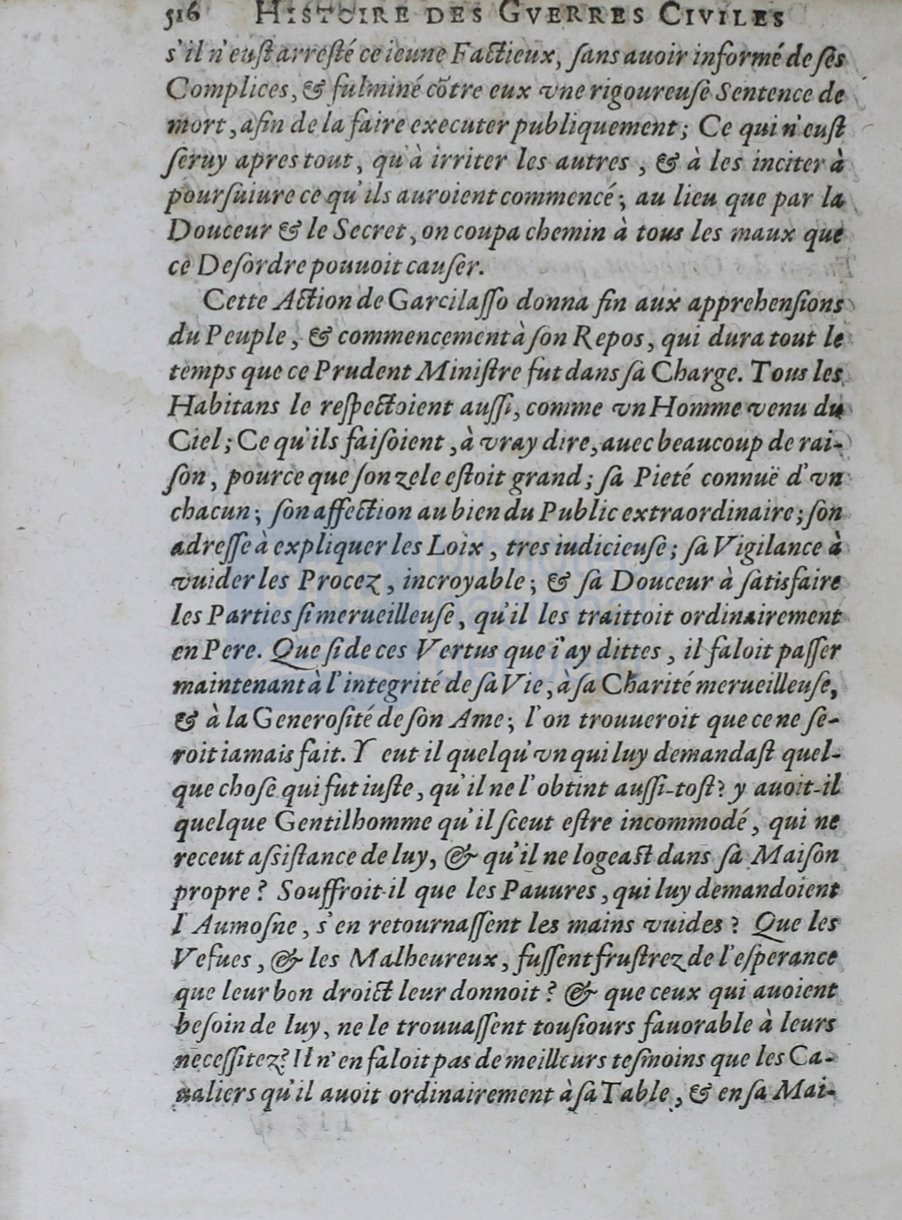 516 HISTOIRE DES GVERRES CIVILES
s'il n'eust arresté ce ieune Factieux, sans auoir informé de ses
Complices, & fulminé cõtre eux vne rigoureuse Sentence de
mort, afin de la faire executer publiquement; Ce qui n'eust
seruy apres tout, qu'à irriter les autres, & à les inciter à
poursuiure ce qu'ils auroient commencé; au lieu que par la
Douceur & le Secret, on coupa chemin à tous les maux que
ce Desordre pouuoit causer.
Cette Action de Garcilasso donna fin aux apprehensions
du Peuple, & commencement à son Repos, qui dura tout le
temps que ce Prudent Ministre fut dans sa Charge. Tous les
Habitans le respectoient aussi, comme vn Homme venu du
Ciel; Ce qu'ils faisoient, à vray dire, auec beaucoup de rai-
son, pource que son zele estoit grand; sa Pieté connuë d'vn
chacun; son affection au bien du Public extraordinaire; son
adresse à expliquer les Loix, tres iudicieuse; sa Vigilance à
vuider les Procez, incroyable; & sa Douceur à satisfaire
les Parties si merueilleuse, qu'il les traittoit ordinairement
en Pere. Que si de ces Vertus que i'ay dittes, il faloit passer
maintenant à l'integrité de sa Vie, à sa Charité merueilleuse,
& à la Generosité de son Ame; l'on trouueroit que ce ne se-
roit iamais fait. Y eut il quelqu'vn qui luy demandast quel-
que chose qui fut iuste, qu'il ne l'obtint aussi-tost? y auoit-il
quelque Gentilhomme qu'il sceut estre incommodé, qui ne
receut assistance de luy, & qu'il ne logeast dans sa Maison
propre? Souffroit-il que les Pauures, qui luy demandoient
l'Aumosne, s'en retournassent les mains vuides? Que les
Vefues, & les Malheureux, fussent frustrez de l'esperance
que leur bon droict leur donnoit? & que ceux qui auoient
besoin de luy, ne le trouuassent tousiours fauorable à leurs
necessitez? Il n'en faloit pas de meilleurs tesmoins que les Ca-
ualiers qu'il auoit ordinairement à sa Table, & en sa Mai-